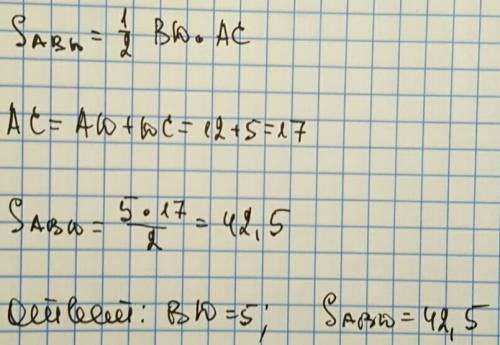 S ABW = 1/2 BW · AC
AC = AW + WC = 12 + 5 = 17
S ABW = 5 · 17 / 2 = 42,5
Ответ: BW = 5; S ABW = 42,5